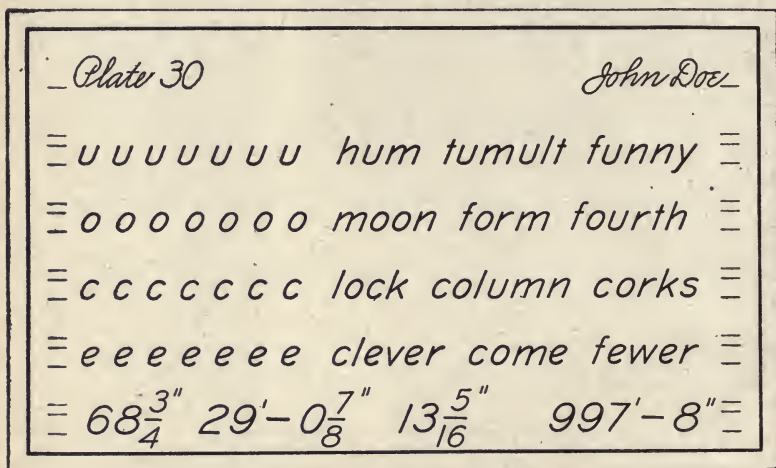 Plate 30 John Doe
u u u u u u u hum tumult funny
o o o o o o o moon form fourth
c c c c c c c lock column corks
e e e e e e e clever come fewer
68 3/4" 29'-0 7/8" 13 5/16" 997'-8"